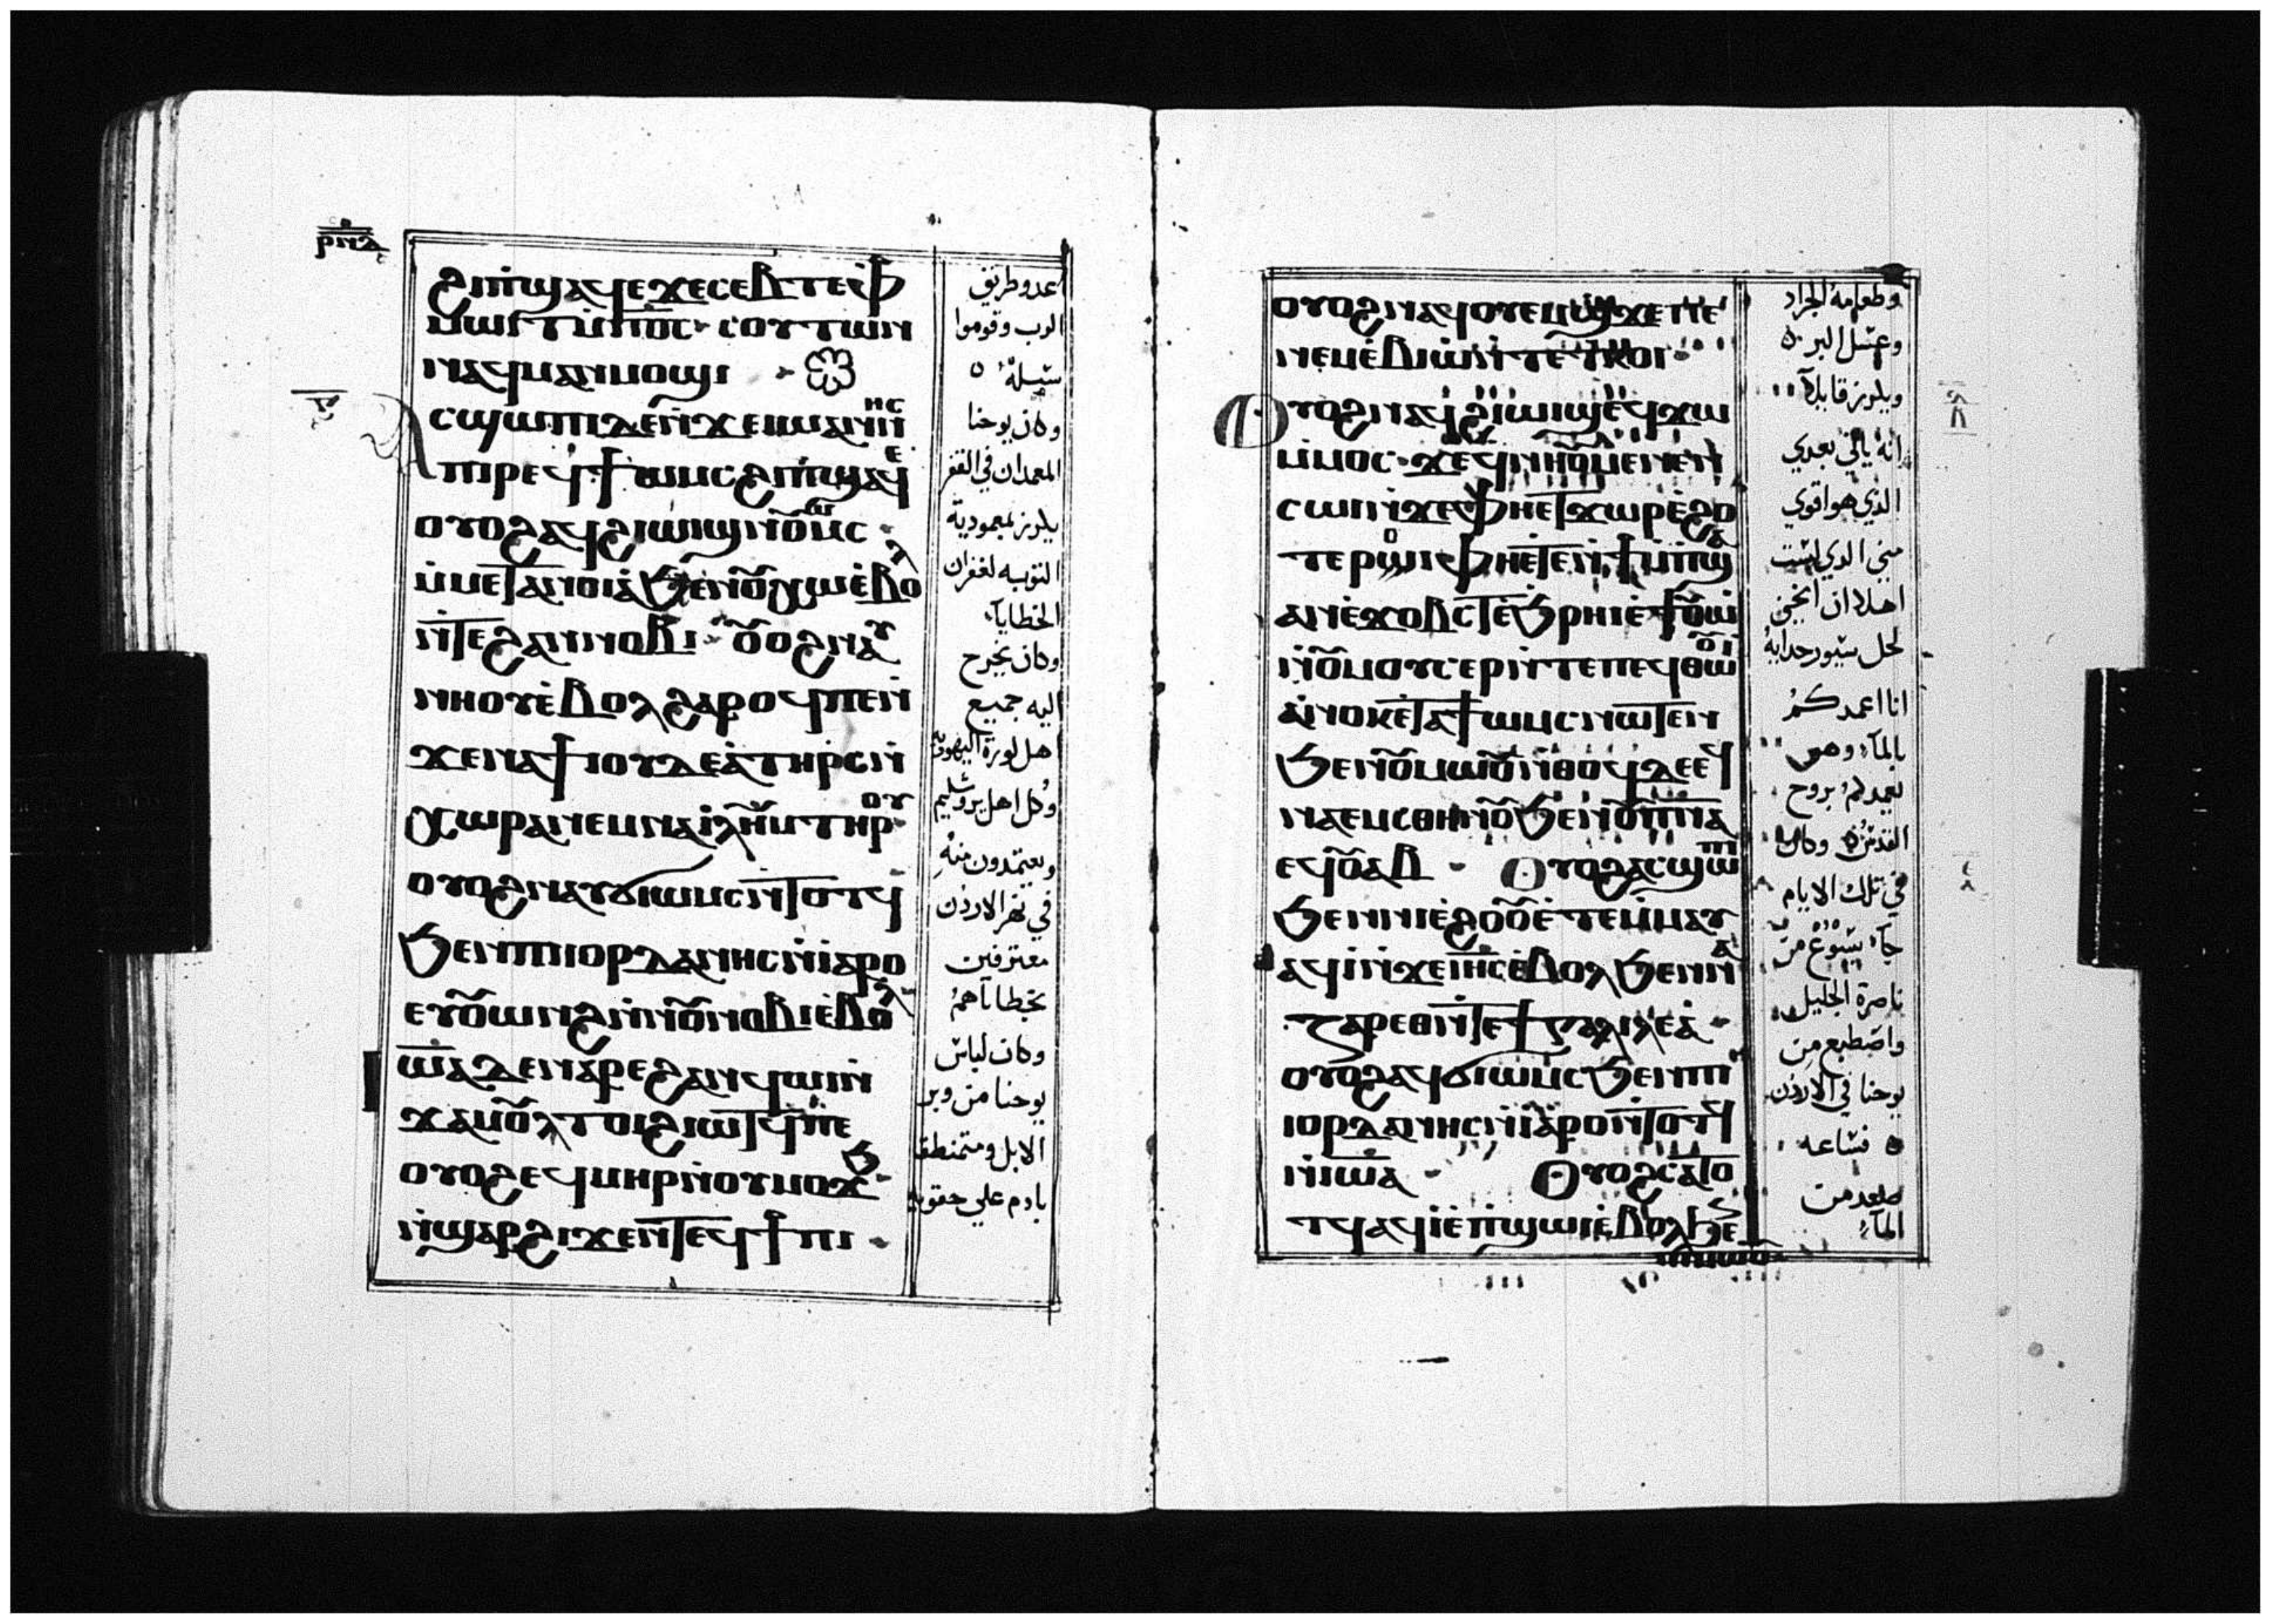 ⲣⲛⲇ
ϩⲓⲡϣⲁϥⲉϫⲉⲥⲉⲃⲧⲉⲫ
ⲙⲱⲓⲧⲙⲡⲟⲥ ⲥⲟⲩⲧⲱⲛ
ⲛⲁϥⲙⲁⲛⲙⲟϣⲓ
ⲁⲥϣⲱⲡⲓⲇⲉⲛϫⲉⲓⲱⲁⲛⲛⲏⲥ
ⲡⲓⲣⲉϥϯⲱⲙⲥϩⲓⲡϣⲁϥⲉ
ⲟⲩⲟϩⲁϥϩⲓⲱⲓϣⲛⲟⲩⲱⲙⲥ
ⲙⲙⲉⲧⲁⲛⲟⲓⲁϧⲉⲛⲟⲩⲭⲱⲉⲃⲟⲗ
ⲛⲧⲉϩⲁⲛⲛⲟⲃⲓ ⲟⲩⲟϩⲛⲁⲩ
ⲛⲏⲟⲩⲉⲃⲟⲗϩⲁⲣⲟϥⲡⲉⲛ
ϫⲉⲛⲁϯⲓⲟⲩⲇⲉⲁⲧⲏⲣⲥⲛ
ⲭⲱⲣⲁⲛⲉⲙⲛⲁⲓⲗⲏⲙⲧⲏⲣⲟⲩ
ⲟⲩⲟϩⲛⲁⲩϭⲓⲱⲙⲥⲛⲧⲟⲧϥ
ϧⲉⲛⲡⲓⲓⲟⲣⲇⲁⲛⲏⲥⲛⲓⲁⲣⲟ
ⲉⲩⲟⲩⲱⲛϩⲛⲛⲟⲩⲛⲟⲃⲓⲉⲃⲟⲗ
ⲓⲱⲁⲇⲉⲛⲁⲣⲉϩⲁⲛϥⲱⲓⲛ
ϫⲁⲙⲟⲩⲗⲧⲟⲓϩⲓⲱⲧϥⲡⲉ
ⲟⲩⲟϩⲉϥⲙⲏⲣⲛⲟⲩⲙⲟϫϧ
ⲛϣⲁⲣϩⲓϫⲉⲛⲧⲉϥϯⲡⲓ
عدو طريق
الرب وقوموا
سبله
وكان يوحنا
المعمدان في القفر
يكرز بمعمودية
التوبه لغفران
الخطايا
وكان يخرج
اليه جميع
اهل كورة اليهودية
وكل اهل يروشليم
ويعتمدون منه
في نهر الاردن
معترفين
بخطاياهم
وكان لباس
يوحنا من وبر
الابل ومتمنطق
بادم علي حقويه
ⲟⲩⲟϩⲛⲁϥⲟⲩⲉⲙϣϫⲉⲡⲉ
ⲛⲉⲙⲉⲃⲓⲱⲛⲧⲉⲧⲕⲟⲓ
ⲟⲩⲟϩⲛⲁϥϩⲓⲱⲓϣⲉϥϫⲱ
ⲙⲙⲟⲥ ϫⲉϥⲛⲏⲟⲩⲙⲉⲛⲉⲛ
ⲥⲱⲓⲛϫⲉⲫⲏⲉⲧϫⲱⲣⲉϩⲟ
ⲧⲉⲣⲟⲓⲫⲏⲉⲧⲉⲛϯⲙⲡϣⲁ
ⲁⲛⲉϫⲟⲃⲥⲧⲉϧⲣⲏⲓⲉϯⲟⲩⲱ
ⲛⲟⲩⲙⲟⲩⲥⲉⲣⲛⲧⲉⲡⲉϥⲑⲱⲟⲩⲓ
ⲁⲛⲟⲕⲉⲧⲁϯⲱⲙⲥⲛⲱⲧⲉⲛ
ϧⲉⲛⲟⲩⲙⲱⲟⲩⲛⲑⲟϥⲇⲉⲉϥ
ⲛⲁⲉⲙⲥⲑⲏⲛⲟⲩϧⲉⲛⲟⲩⲡⲛⲁ
ⲉϥⲟⲩⲁⲃ ⲟⲩⲟϩⲁⲥϣⲱⲡ
ϧⲉⲛⲛⲓⲉϩⲟⲟⲩⲉⲧⲉⲙⲙⲁⲩ
ⲁϥⲓⲛϫⲉⲓⲏⲥⲉⲃⲟⲗϧⲉⲛⲛⲁ
ⲍⲁⲣⲉⲑⲛⲧⲉϯⲅⲁⲗⲓⲗⲉⲁ
ⲟⲩⲟϩⲁϥϭⲓⲱⲙⲥϧⲉⲛⲡⲓ
ⲓⲟⲣⲇⲁⲛⲏⲥⲛⲓⲁⲣⲟⲛⲧⲟⲧϥ
ⲛⲓⲱⲁ ⲟⲩⲟϩⲥⲁⲧⲟ
ⲧϥⲁϥⲓⲉⲡϣⲱⲓⲉⲃⲟⲗϧⲉ
وطعامه الجراد
وعسل البر
ويكرز قايلا
انه ياتي بعدي
الذي هو اقوي
مني الدي لست
اهلا ان انحني
لحل سيور حدايه
انا اعمدكم
بالماء وهو
يعمدكم بروح
القدس وكان
في تلك الايام
جاء يسوع من
ناصرة الجليل
واصطبع من
يوحنا في الاردن
فساعه
صعد من
الماء